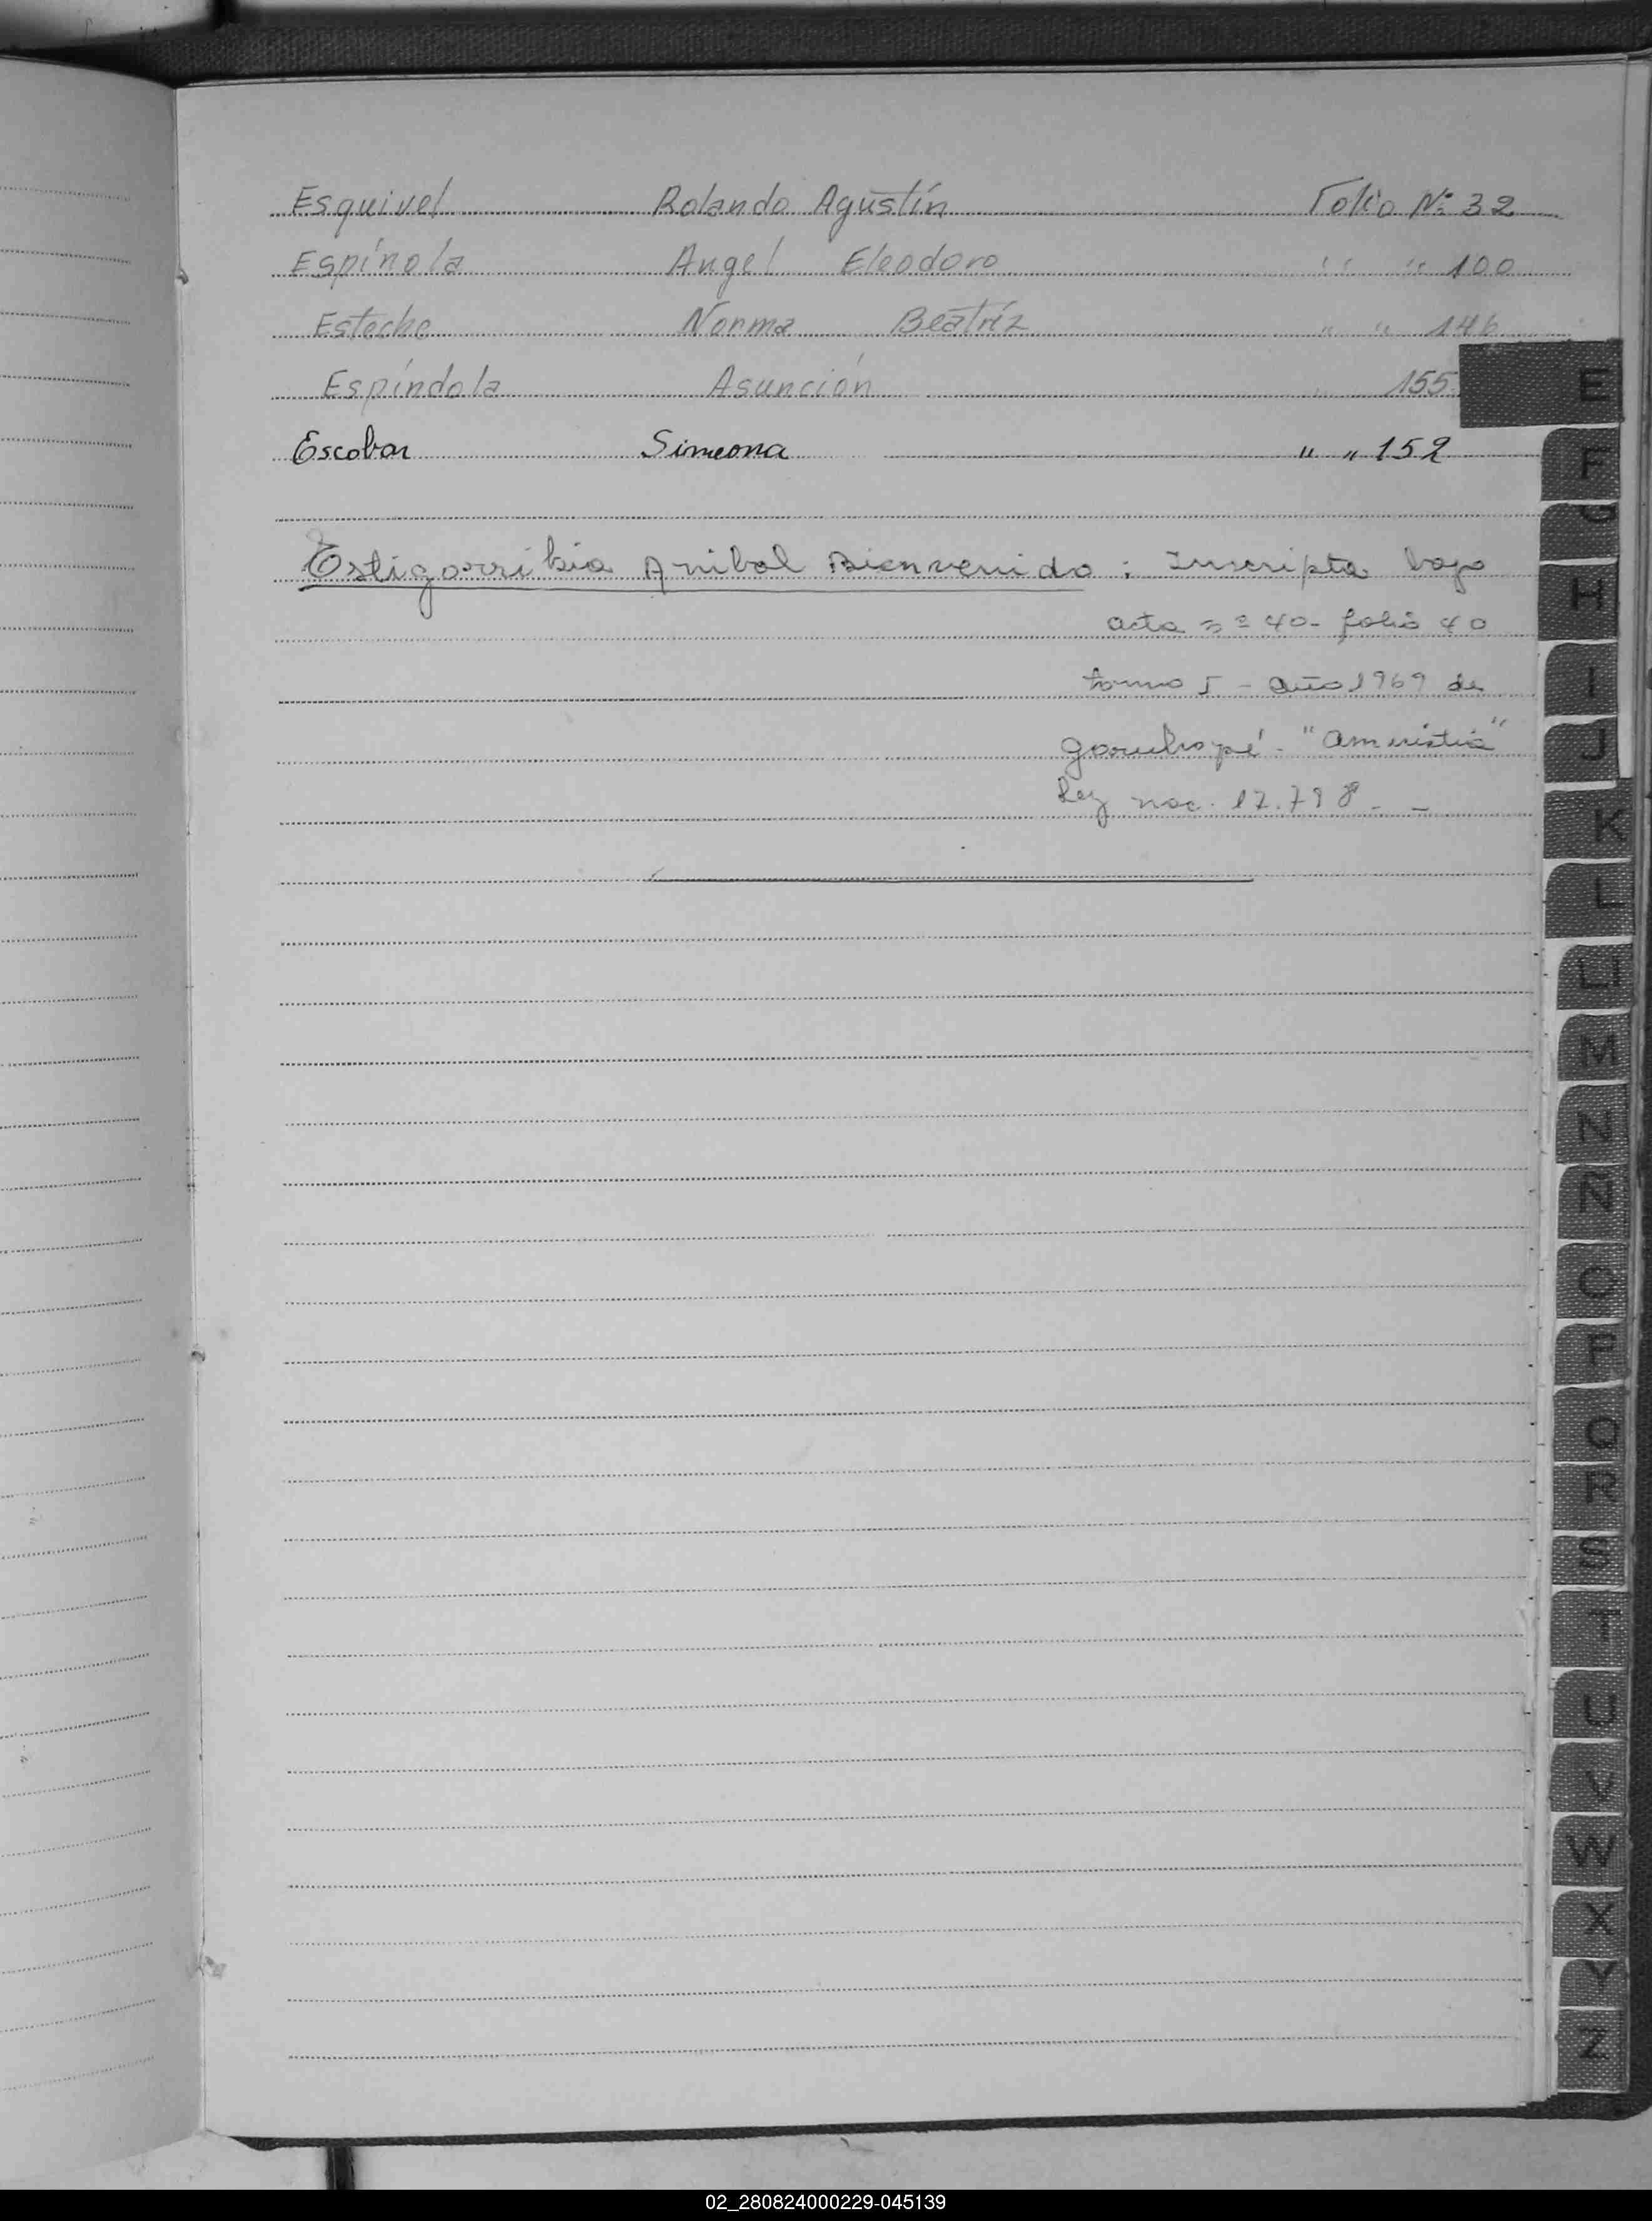 Esquivel Rolando Agustín Folio Nº 32
Espínola Angel Eleodoro " " 100
Esteche Norma Beatríz " " 146
Espíndola Asunción " 155
Escobar Simeona " " 152
Estigarribia Anibal Bienvenido : Inscripta bajo
acta nº 40 - folio 40
tomo I - año 1969 de
Garuhapé - "Amnistía"
Ley nac. 17.798 - -
E
F
G
H
I
J
K
L
LL
M
N
Ñ
O
P
Q
R
S
T
U
V
W
X
Y
Z
02_280824000229-045139